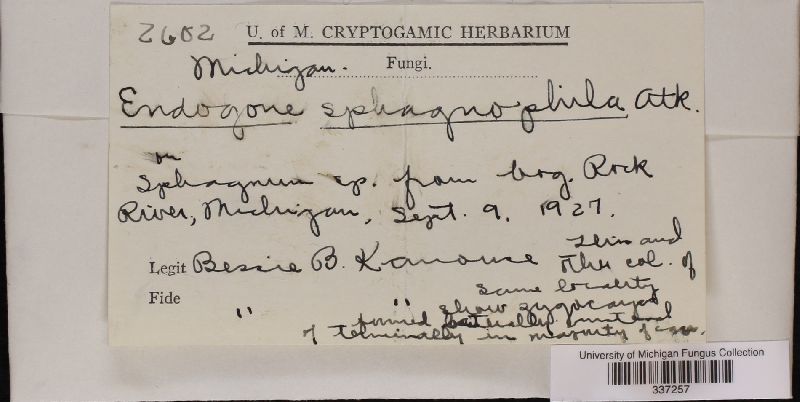 2602
U. of M. CRYPTOGAMIC HERBARIUM
Michigan. Fungi.
Endogone sphagnophila Atk.
on
Sphagnum sp. from bog. Rock
River, Michigan, Sept. 9, 1927.
Legit Bessie B. Kanouse
This and
other col. of
same locality
show zygocarps
formed laterally instead
of terminally in majority of
Fide " "
University of Michigan Fungus Collection
337257